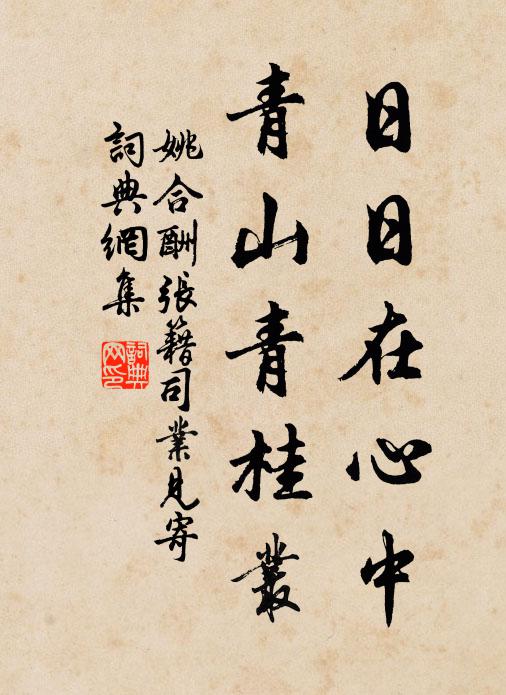 日日在心中
青山青桂叢
姚合酬張籍司業見寄
詞典網集
詞典網印